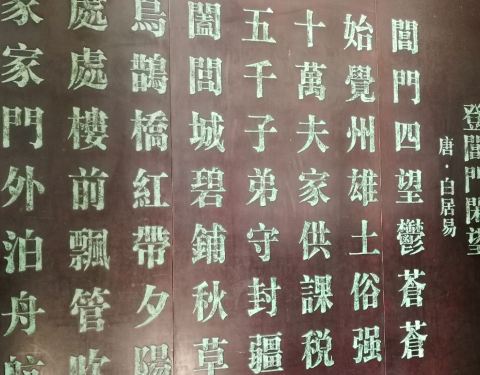 登閶門閑望
唐·白居易
閶門四望鬱蒼蒼
始覺州雄土俗强
十萬夫家供課税
五千子弟守封疆
闔閭城碧鋪秋草
烏鵲橋紅帶夕陽
處處樓前飄管吹
家家門外泊舟航